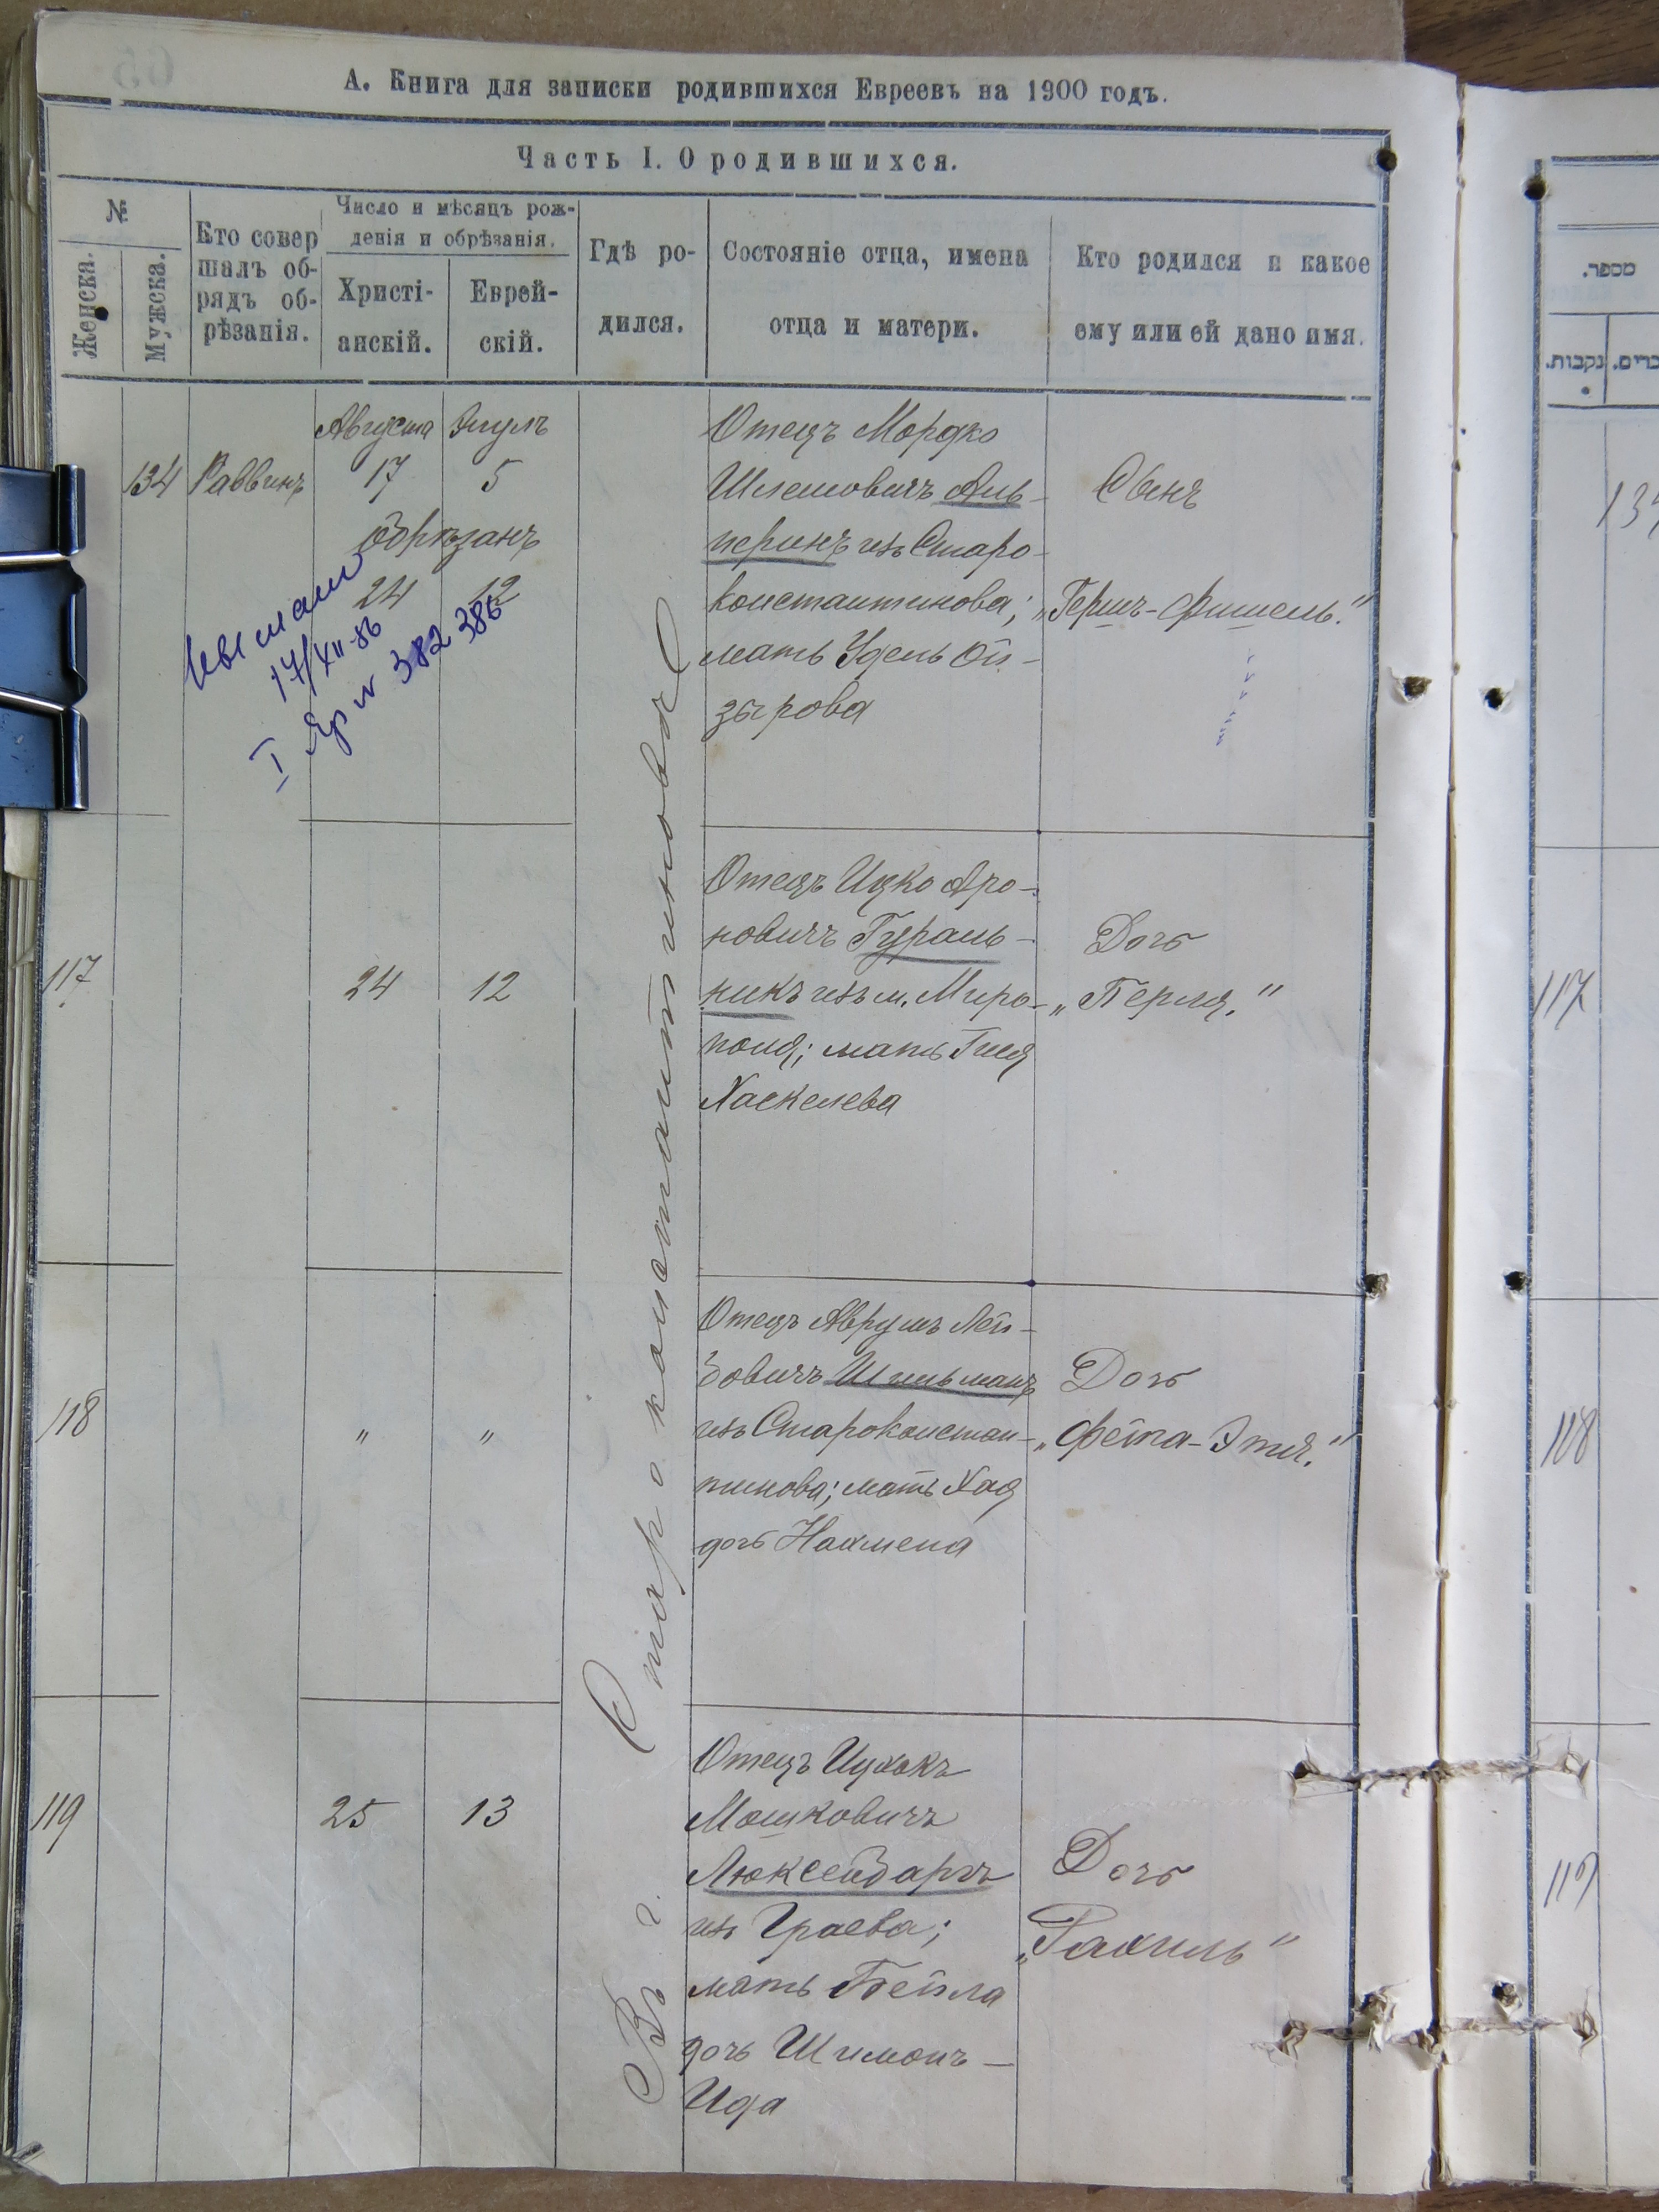 А. Книга для записки родившихся Евреевъ на 1900 годъ.
Часть I. О родившихся.
№
Женска.
Мужска.
Кто совер
шалъ об-
рядъ об-
рѣзанія.
Число и мѣсяцъ рож-
денія и обрѣзанія.
Христі-
анскій.
Еврей-
скій.
Гдѣ ро-
дился.
Состояніе отца, имена
отца и матери.
Кто родился и какое
ему или ей дано имя.
134
Раввинъ
Августа
17
Элулъ
5
Обрѣзанъ
24 12
17/XII-86
382386
Въ г. Староконстантиновѣ
Отецъ Мордко
Шлемовичъ Аль-
перинъ изъ Старо-
константинова;
мать Удель Ой-
зырова
Сынъ
„Гершъ-Фишель."
117
24
12
Отецъ Ицко Аро-
новичъ Гураль-
никъ изъ м. Миро-
поля; мать Гися
Хаскелева
Дочь
„Перля."
118
"
"
Отецъ Аврумъ Лей-
бовичъ Шпильманъ
изъ Староконстан-
тинова; мать Хая
дочь Нахмена
Дочь
„Фейга-Этя."
119
25
13
Отецъ Ицхокъ
Мошковичъ
Люксенбаргъ
изъ Граева;
мать Бейла
дочь Шимонъ-
Ида
Дочь
„Рахиль"
מספר.
נקבות.
זכרים.
134
117
118
119